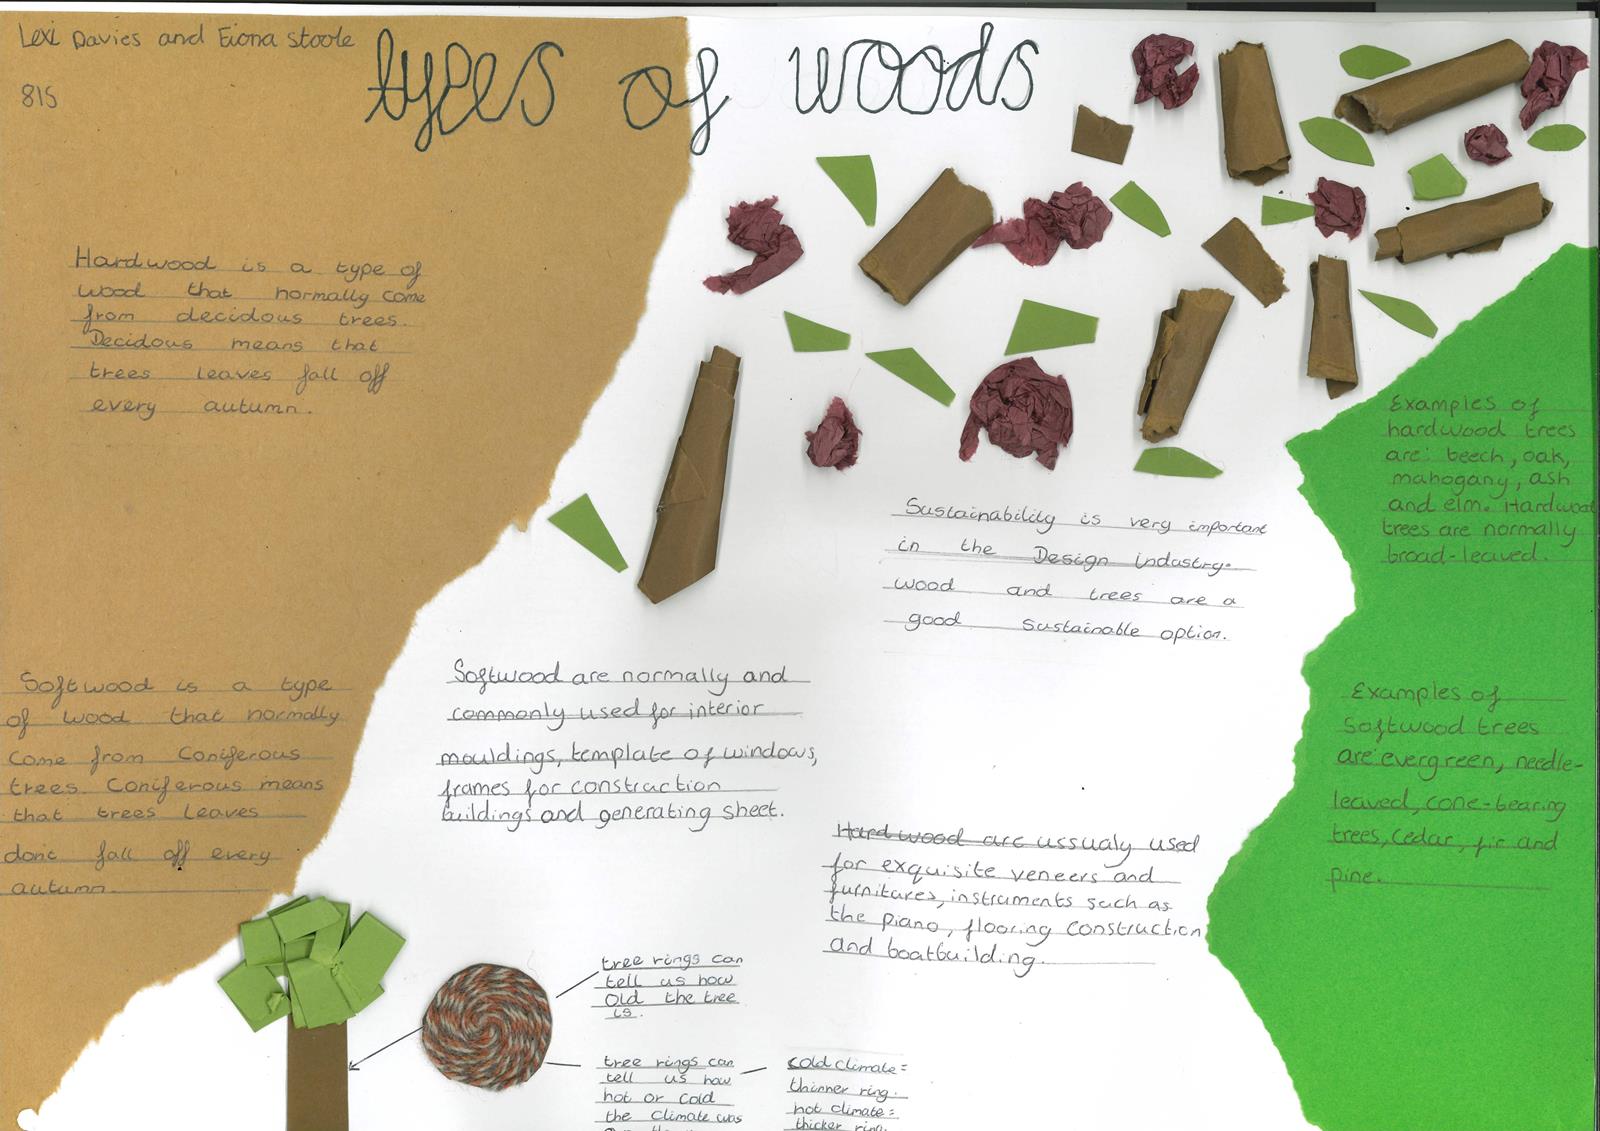 Lexi Davies and Fiona Stoole
815
types of woods
Hardwood is a type of
wood that normally come
from decidous trees.
Decidous means that
trees leaves fall off
every autumn.
Softwood is a type
of wood that normally
come from Coniferous
trees. Coniferous means
that trees leaves
dont fall off every
autumn.
Softwood are normally and
commonly used for interior
mouldings, template of windows,
frames for construction
buildings and generating sheet.
Sustainability is very important
in the Design industry.
wood and trees are a
good sustainable option.
Hardwood are ussualy used
for exquisite veneers and
furnitures, instruments such as
the piano, flooring construction
and boatbuilding.
Examples of
hardwood trees
are: beech, oak,
mahogany, ash
and elm. Hardwood
trees are normally
broad-leaved.
Examples of
Softwood trees
are: evergreen, needle-
leaved, cone-bearing
trees, cedar, fir and
pine.
tree rings can
tell us how
old the tree
is.
tree rings can
tell us how
hot or cold
the climate was
cold climate =
thinner ring.
hot climate =
thicker ring.